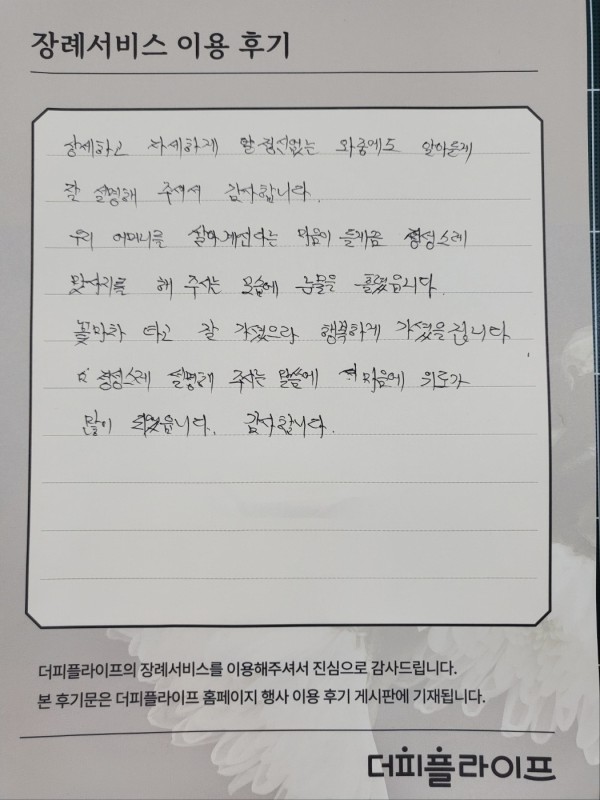 장례서비스 이용 후기
상세하고 자세하게 말 정신없는 와중에도 알아듣게
잘 설명해 주셔서 감사합니다.
우리 어머니를 살아계신다는 마음이 들게끔 정성스레
맞사지를 해 주시는 모습에 눈물을 흘렸읍니다.
꽃마차 타고 잘 가셨으라 행복하게 가셨을겁니다
정성스레 설명해 주시는 말씀에 마음에 위로가
많이 되었읍니다. 감사합니다.
더피플라이프의 장례서비스를 이용해주셔서 진심으로 감사드립니다.
본 후기문은 더피플라이프 홈페이지 행사 이용 후기 게시판에 기재됩니다.
더피플라이프